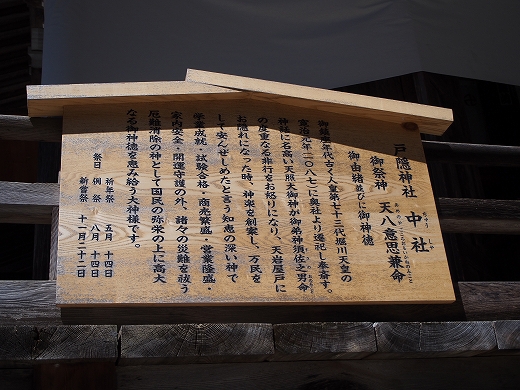 戸隠神社 中社
ちゅうしゃ
御祭神 天八意思兼命
あめのやごころおもいかねのみこと
御由緒並びに御神徳
御鎮座年代古く人皇第七十三代堀川天皇の
寛治元年(一〇八七)に奥社より遷祀し奉斎す。
神話に名高い天照大御神が御弟神須佐之男命
の度重なる非行をお怒りになり、天岩屋戸に
お隠れになった時、神楽を創案し、万民を
して安んぜしめたと言う知恵の深い神で
学業成就・試験合格・商売繁盛・営業隆盛・
家内安全・開運守護の外、諸々の災難を祓う
厄難消除の神として国民の弥栄の上に高大
なる御神徳を恵み給う大神様です。
祭日 祈年祭 五月 十四日
例祭 八月 十四日
新嘗祭 十一月二十二日